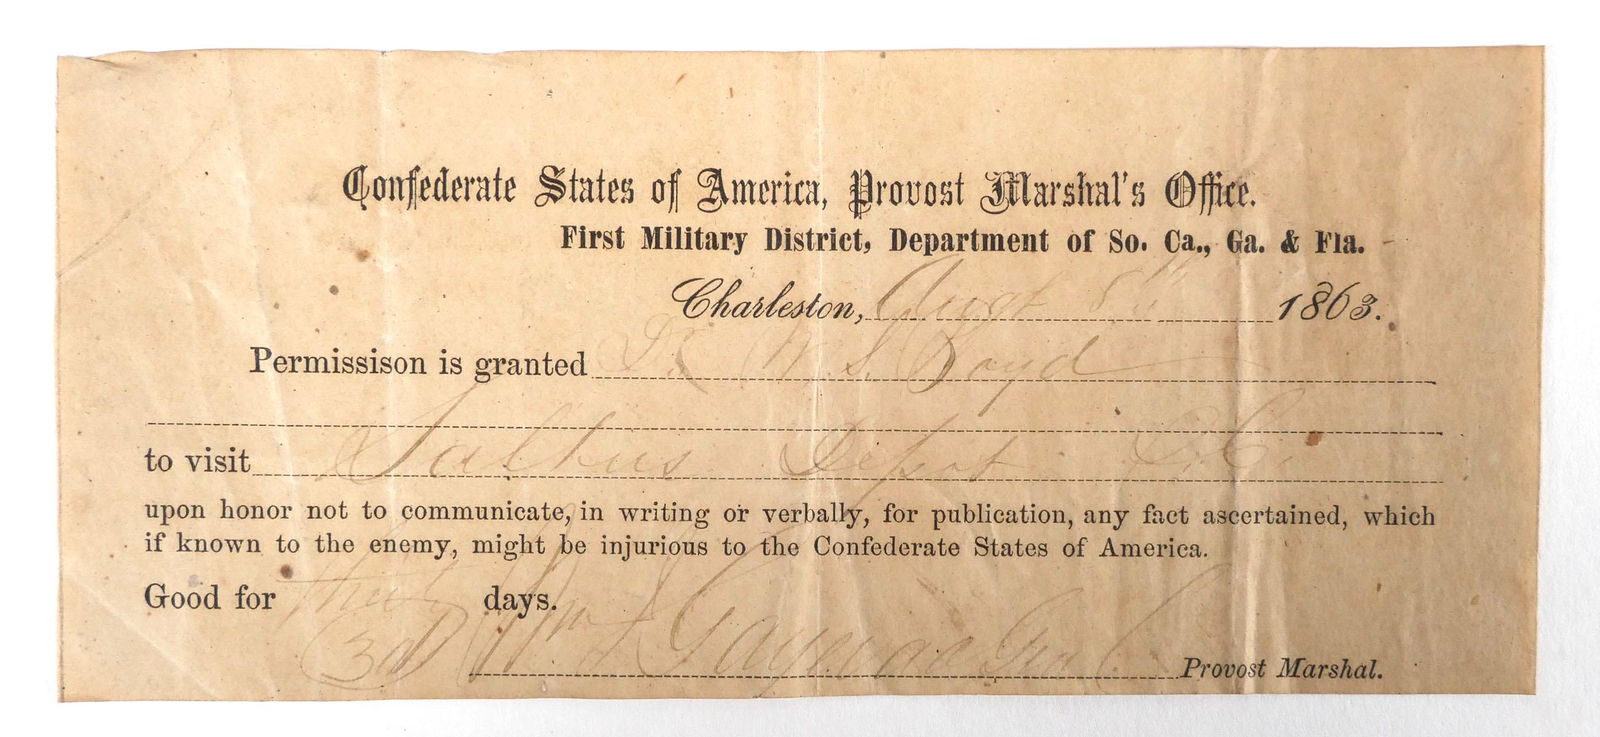 Confederate States of America, Provost Marshal's Office.
First Military District, Department of So. Ca., Ga. & Fla.
Charleston, Augt 8th 1863.
Permissison is granted Dr. W. S. Boyd
to visit Salkus Depot S. C.
upon honor not to communicate, in writing or verbally, for publication, any fact ascertained, which
if known to the enemy, might be injurious to the Confederate States of America.
Good for thirty days.
(30) Wm J. Provost Marshal.